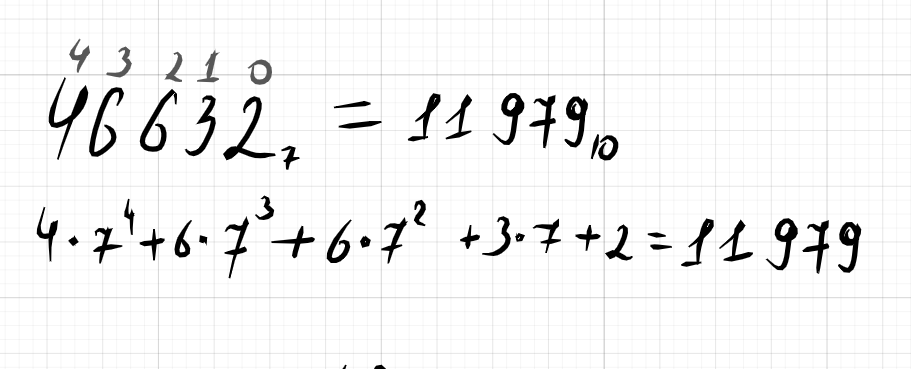 4 3 2 1 0
46632₇ = 11979₁₀
4·7⁴+6·7³+6·7² +3·7+2=11979